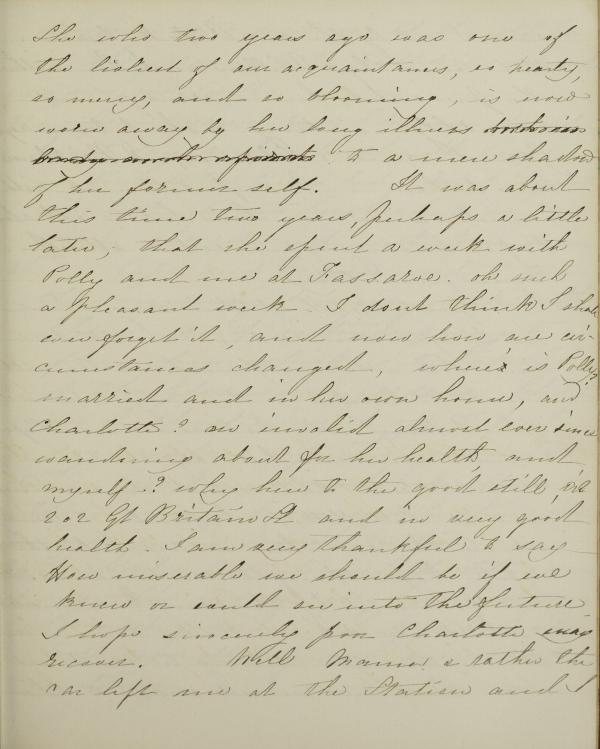 She who two years ago was one of
the liveliest of our acquaintances, so hearty,
so merry, and so blooming, is now
worn away by her long illness
to a mere shadow
of her former self. It was about
this time two years, perhaps a little
later, that she spent a week with
Polly and me at Fassaroe. oh such
a pleasant week. I dont think I shall
ever forget it, and now how are cir-
cumstances changed, where is Polly?
married and in her own home, and
Charlotte? an invalid almost ever since
wandering about for her health, and
myself? why here to the good still, viz
202 Gt Britain St and in very good
health. I am very thankful to say
How miserable we should be if we
knew or could see into the future
I hope sincerely poor Charlotte may
recover. Well Mama & rather the
car left me at the Station and I